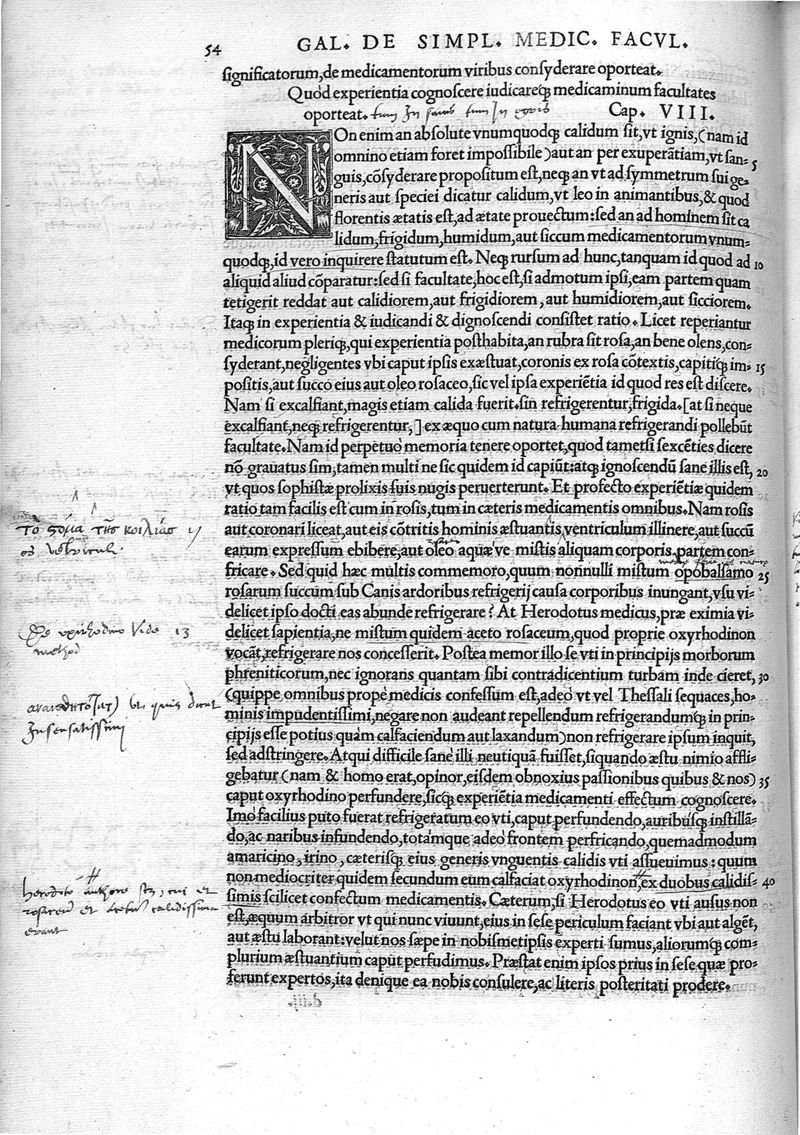 54 GAL. DE SIMPL. MEDIC. FACVL.
significatorum, de medicamentorum viribus consyderare oporteat.
Quòd experientia cognoscere iudicareq́; medicaminum facultates
oporteat. Cap. VIII.
NOn enim an absolute vnumquodq; calidum sit, vt ignis, (nam id
omnino etiam foret impossibile) aut an per exuperãtiam, vt san-
5
guis, cõsyderare propositum est, neq; an vt ad symmetrum sui ge-
neris aut speciei dicatur calidum, vt leo in animantibus, & quod
florentis ætatis est, ad ætate prouectum: sed an ad hominem sit ca
lidum, frigidum, humidum, aut siccum medicamentorum vnum-
quodq;, id vero inquirere statutum est. Neq; rursum ad hunc, tanquam id quod ad 10
aliquid aliud cõparatur: sed si facultate, hoc est, si admotum ipsi, eam partem quam
tetigerit reddat aut calidiorem, aut frigidiorem, aut humidiorem, aut sicciorem.
Itaq; in experientia & iudicandi & dignoscendi consistet ratio. Licet reperiantur
medicorum pleriq;, qui experientia posthabita, an rubra sit rosa, an bene olens, con-
syderant, negligentes vbi caput ipsis exæstuat, coronis ex rosa cõtextis, capitiq́; im- 15
positis, aut succo eius aut oleo rosaceo, sic vel ipsa experiẽtia id quod res est discere.
Nam si excalfiant, magis etiam calida fuerit. sin refrigerentur, frigida. [at si neque
excalfiant, neq; refrigerentur, ] ex æquo cum natura humana refrigerandi pollebũt
facultate. Nam id perpetuò memoria tenere oportet, quod tametsi sexcẽties dicere
nõ grauatus sim, tamen multi ne sic quidem id capiũt: atq; ignoscendũ sane illis est, 20
vt quos sophistæ prolixis suis nugis peruerterunt. Et profecto experiẽtiæ quidem
ratio tam facilis est cum in rosis, tum in cæteris medicamentis omnibus. Nam rosis
aut coronari liceat, aut eis cõtritis hominis æstuantis ventriculum illinere, aut succũ
earum expressum ebibere, aut oleo aquæ ve mistis aliquam corporis partem con-
fricare. Sed quid hæc multis commemoro, quum nonnulli mistum opobalsamo 25
rosarum succum sub Canis ardoribus refrigerij causa corporibus inungant, vsu vi-
delicet ipso docti eas abunde refrigerare? At Herodotus medicus, præ eximia vi-
delicet sapientia, ne mistum quidem aceto rosaceum, quod proprie oxyrhodinon
vocãt, refrigerare nos concesserit. Postea memor illo se vti in principijs morborum
phreniticorum, nec ignorans quantam sibi contradicentium turbam inde cieret, 30
(quippe omnibus propè medicis confessum est, adeò vt vel Thessali sequaces, ho-
minis impudentissimi, negare non audeant repellendum refrigerandumq́; in prin-
cipijs esse potius quàm calfaciendum aut laxandum) non refrigerare ipsum inquit,
sed adstringere. Atqui difficile sanè illi neutiquã fuisset, siquando æstu nimio affli-
gebatur (nam & homo erat, opinor, eisdem obnoxius passionibus quibus & nos) 35
caput oxyrhodino perfundere, sicq́; experiẽtia medicamenti effectum cognoscere.
Imò facilius puto fuerat refrigeratum eo vti, caput perfundendo, auribusq́; instillã-
do, ac naribus infundendo, totámque adeò frontem perfricando, quemadmodum
amaricino, irino, cæterisq́; eius generis vnguentis calidis vti assueuimus: quum
non mediocriter quidem secundum eum calfaciat oxyrhodinon, ex duobus calidis- 40
simis scilicet confectum medicamentis. Cæterum, si Herodotus eo vti ausus non
est, æquum arbitror vt qui nunc viuunt, eius in sese periculum faciant vbi aut algẽt,
aut æstu laborant: velut nos sæpe in nobismetipsis experti sumus, aliorumq́; com-
plurium æstuantium caput perfudimus. Præstat enim ipsos prius in sese quæ pro-
ferunt expertos, ita denique ea nobis consulere, ac literis posteritati prodere.
τὸ στόμα τῆς κοιλίας
De oxirhodino Vide 13
method
quis diceret
Insensatissimi
herodoto authore
rosaceum et acetum calidissima
erant